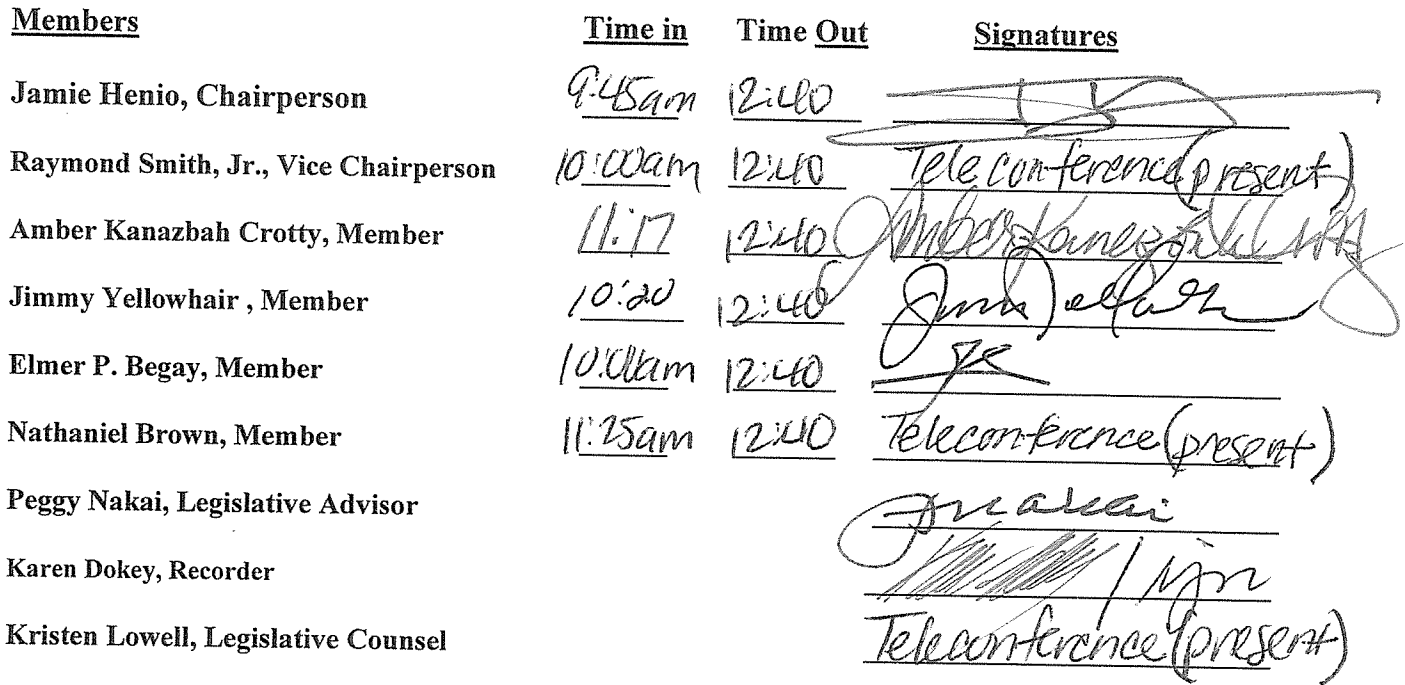 Members Time in Time Out Signatures
Jamie Henio, Chairperson 9:45am 12:40
Raymond Smith, Jr., Vice Chairperson 10:00am 12:40 Teleconference (present)
Amber Kanazbah Crotty, Member 11:17 12:40
Jimmy Yellowhair , Member 10:20 12:40
Elmer P. Begay, Member 10:00am 12:40
Nathaniel Brown, Member 11:25am 12:40 Teleconference (present)
Peggy Nakai, Legislative Advisor
Karen Dokey, Recorder
Kristen Lowell, Legislative Counsel Teleconference (present)